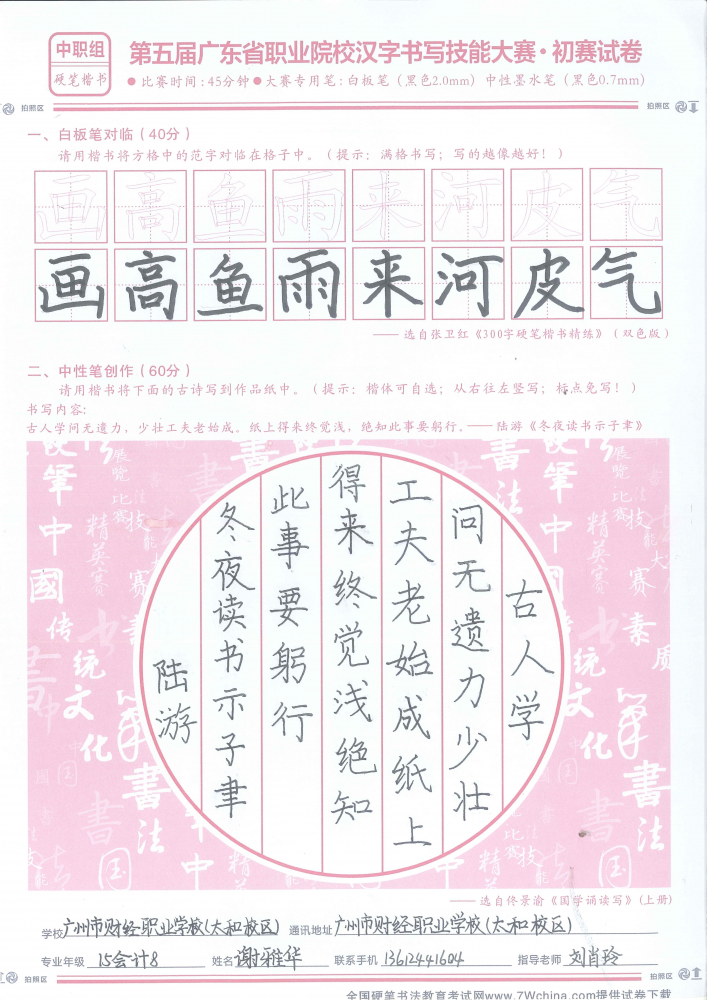 中职组
硬笔楷书
第五届广东省职业院校汉字书写技能大赛·初赛试卷
● 比赛时间：45分钟 ● 大赛专用笔：白板笔（黑色2.0mm）中性墨水笔（黑色0.7mm）
拍照区
拍照区
一、白板笔对临（40分）
请用楷书将方格中的范字对临在格子中。（提示：满格书写；写的越像越好！）
画高鱼雨来河皮气
画高鱼雨来河皮气
—— 选自张卫红《300字硬笔楷书精练》（双色版）
二、中性笔创作（60分）
请用楷书将下面的古诗写到作品纸中。（提示：楷体可自选；从右往左竖写；标点免写！）
书写内容：
古人学问无遗力，少壮工夫老始成。纸上得来终觉浅，绝知此事要躬行。——陆游《冬夜读书示子聿》
古人学
问无遗力少壮
工夫老始成纸上
得来终觉浅绝知
此事要躬行
冬夜读书示子聿
陆游
—— 选自佟景渝《国学诵读写》(上册)
学校 广州市财经职业学校(太和校区) 通讯地址 广州市财经职业学校(太和校区)
专业年级 15会计8 姓名 谢雅华 联系手机 13612441604 指导老师 刘肖玲
拍照区
拍照区
全国硬笔书法教育考试网www.7Wchina.com提供试卷下载